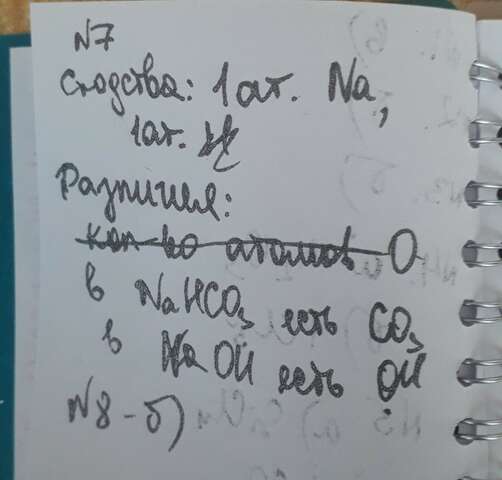 N7
Сходства: 1 ат. Na,
1 ат. H
Различия:
кол-во атомов O
в NaHCO3 есть CO3
в NaOH есть OH
N8 - б)